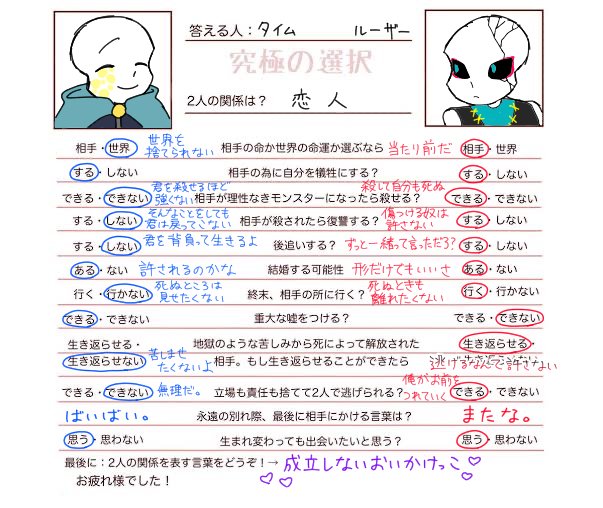 答える人：タイム　ルーザー
究極の選択
2人の関係は？　恋人
相手・世界　世界を捨てられない　相手の命か世界の命運か選ぶなら　当たり前だ　相手・世界
する・しない　相手の為に自分を犠牲にする？　する・しない
できる・できない　君を殺せるほど強くない　相手が理性なきモンスターになったら殺せる？　殺して自分も死ぬ　できる・できない
する・しない　そんなことをしても君は戻ってこない　相手が殺されたら復讐する？　傷つける奴は許さない　する・しない
する・しない　君を背負って生きるよ　後追いする？　ずっと一緒って言っただろ？　する・しない
ある・ない　許されるのかな　結婚する可能性　形だけでもいいさ　ある・ない
行く・行かない　死ぬところは見せたくない　終末、相手の所に行く？　死ぬときも離れたくない　行く・行かない
できる・できない　重大な嘘をつける？　できる・できない
生き返らせる・　地獄のような苦しみから死によって解放された　生き返らせる・
生き返らせない　苦しませたくないよ　相手。もし生き返らせることができたら　逃げるなんて許さない
できる・できない　無理だ。　立場も責任も捨てて2人で逃げられる？　俺がお前をつれていく　できる・できない
ばいばい。　永遠の別れ際、最後に相手にかける言葉は？　またな。
思う・思わない　生まれ変わっても出会いたいと思う？　思う・思わない
最後に：2人の関係を表す言葉をどうぞ！→　成立しないおいかけっこ
お疲れ様でした！